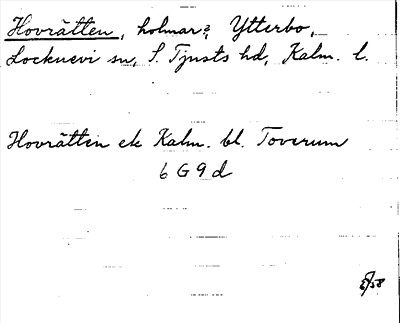 Hovrätten, holmar?, Ytterbo,
Locknevi sn, S. Tjusts hd, Kalm. l.
Hovrätten ek Kalm. bl. Toverum
6 G 9 d
5/58